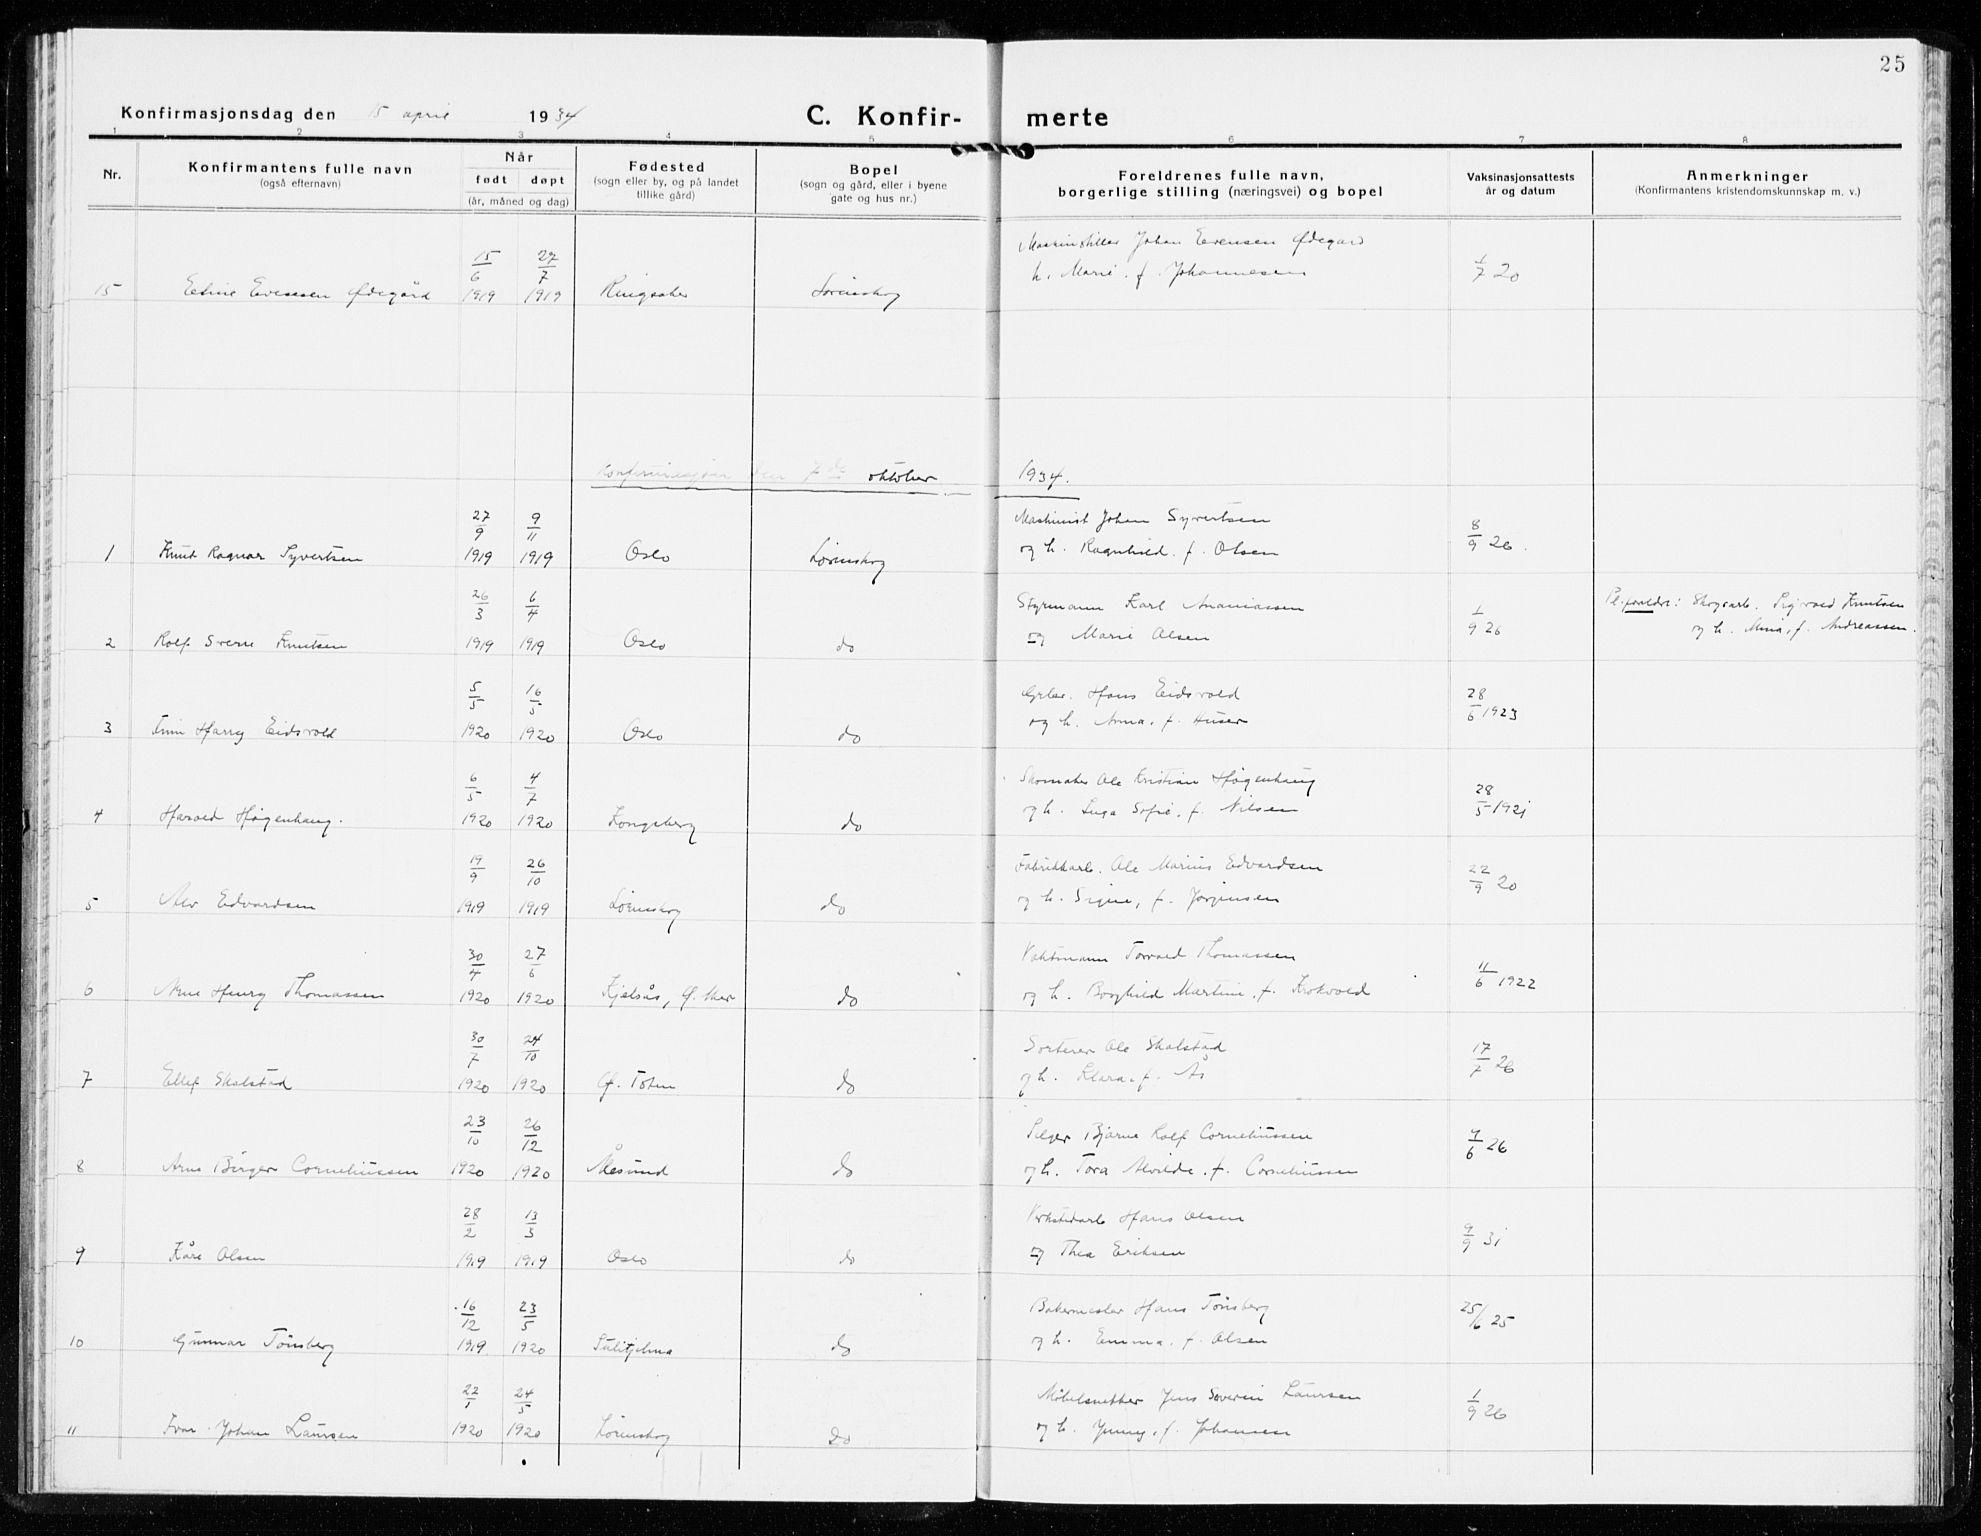 25
Konfirmasjonsdag den 15 april 1934
C. Konfir-merte
1 2 3 4 5 6 7 8
Nr.
Konfirmantens fulle navn
(også efternavn)
Når
født døpt
(år, måned og dag)
Fødested
(sogn eller by, og på landet
tillike gård)
Bopel
(sogn og gård, eller i byene
gate og hus nr.)
Foreldrenes fulle navn,
borgerlige stilling (næringsvei) og bopel
Vaksinasjonsattests
år og datum
Anmerkninger
(Konfirmantens kristendomskunnskap m. v.)
15 Evensen Ødegård 15/6 1919 27/7 1919 Ringsaker Lørenskog
Johan Evensen Ødegård
h. Marie f. Johannesen 1/7 20
Konfirmasjon den 7de oktober 1934.
1 Knut Ragnar Syvertsen 27/9 1919 9/11 1919 Oslo Lørenskog
Maskinist Johan Syvertsen
og h. Ragnhild f. Olsen 8/9 26.
2 Rolf Sverre Knutsen 26/3 1919 6/4 1919 Oslo do
Styrmann Karl Ananiassen
og Marie Olsen 1/9 26
Pl.foreldre: Skogsarb. Sigvald Knutsen
og h. Mina, f. Andreassen.
3 Finn Harry Eidsvold 5/5 1920 16/5 1920 Oslo do
Hans Eidsvold
og h. Anna, f. Huser 28/6 1923
4 Harald Høgenhaug. 6/5 1920 4/7 1920 Kongsberg do
Skomaker Ole Kristian Høgenhaug
og h. Inga Sofie, f. Nilsen 28/5 1921
5 Alv Edvardsen 19/9 1919 26/10 1919 Lørenskog do
Fabrikkarb. Ole Marius Edvardsen
og h. Signe, f. Jørgensen 22/9 20
6 Arne Henry Thomassen 30/4 1920 27/6 1920 Kjelsås, Ø. Aker do
Vaktmann Torvald Thomassen
og h. Borghild Martine, f. Krokvold 11/6 1922
7 Ellef Skolstad 30/7 1920 24/10 1920 Ø. Toten do
Sorterer Ole Skolstad
og h. Klara, f. Ås 17/7 26
8 Arne Birger Corneliussen 23/10 1920 26/12 1920 Ålesund do
Selger Bjarne Rolf Corneliussen
og h. Tora Alvilde, f. Corneliussen 4/6 26
9 Kåre Olsen 28/2 1919 13/3 1919 Oslo do
Verkstedarb Hans Olsen
og Thea Eriksen 9/9 31
10 Gunnar Tønsberg 16/12 1919 23/5 1920 Sulitjelma do
Bakermester Hans Tønsberg
og h. Emma, f. Olsen 25/6 25
11 Ivar Johan Laursen 22/1 1920 24/5 1920 Lørenskog do
Møbelsnekker Jens Severin Laursen
og h. Jenny, f. Johansen 1/9 26